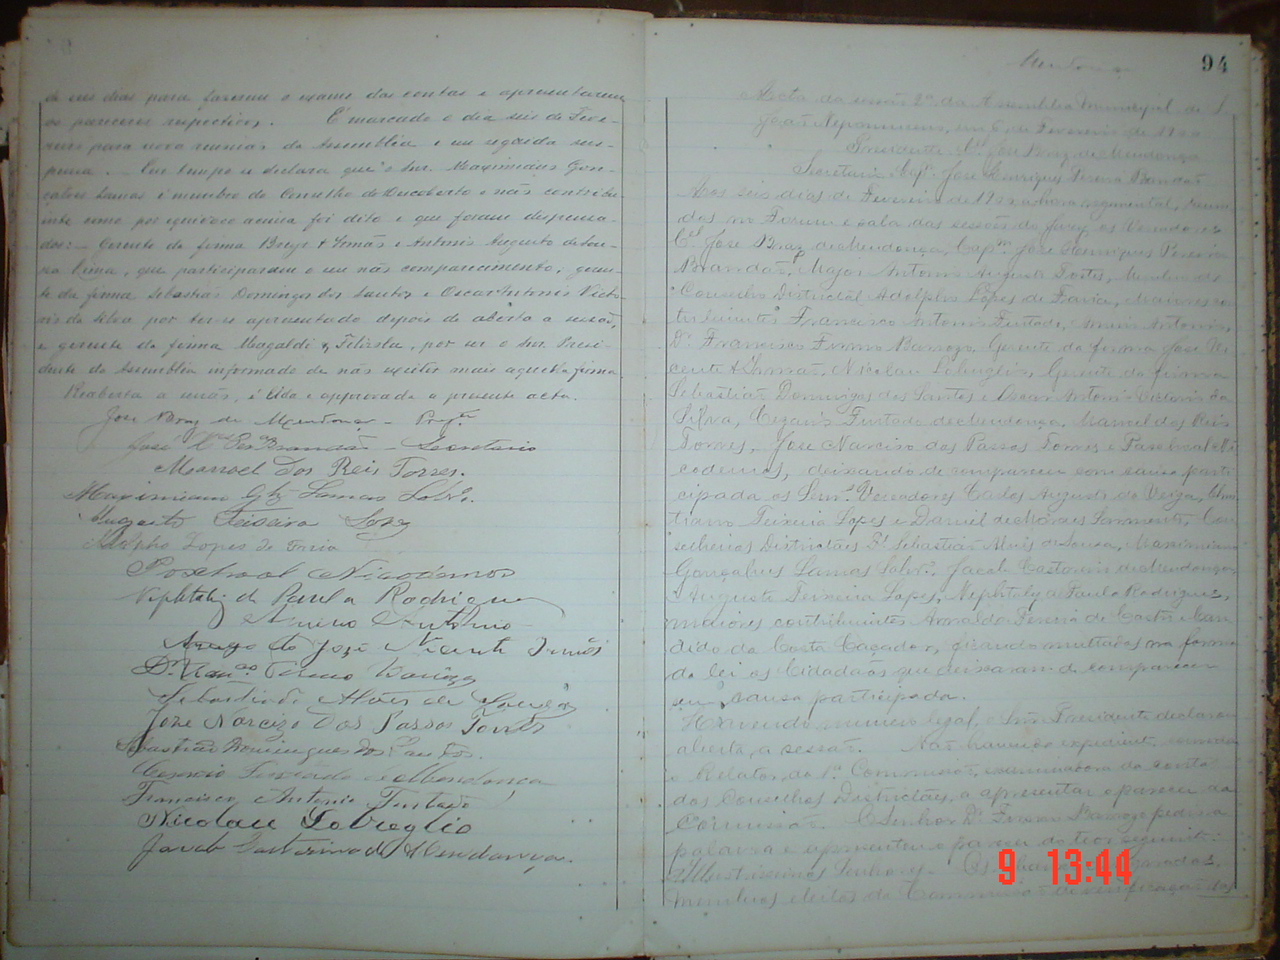 de seis dias para fazerem o exame das contas e apresentarem
os pareceres respectivos. É marcado o dia seis de Feve-
reiro para nova reunião da Assembléa e em seguida sus-
pensa. Em tempo se declara que o Snr. Maximiano Gon-
çalves Lamas é membro do Conselho do Descoberto e não contribu-
inte como por equivoco acima foi dito e que foram dispensa-
dos: - Gerente da firma Braga & Irmão e Antonio Augusto de Sou-
za Lima, que participaram o seu não comparecimento; geren-
te da firma Sebastião Domingos dos Santos e Oscar Antonio Victo-
rio da Silva por ter-se apresentado depois de aberta a sessão,
e gerente da firma Magaldi & Filizola, por ser o Snr. Presi-
dente da Assembléa informado de não existir mais aquella firma.
Reaberta a sessão, é lida e approvada a presente acta.
José Braz de Mendonça - Presᵗᵉ
José Hᵉˢ Perª Brandão - Secretario
Manoel dos Reis Torres.
Maximiano Glz Lamas Sobrº.
Augusto Teixeira Lopes
Adolpho Lopes de Faria
Paschoal Nicodemos
Nephtaly de Paula Rodrigues
Antonio
José Vicente & Irmão
Dr. Francº Firmo
Sebastião Alves de Souza
José Narcizo dos Passos Torres
Sebastião Domingues dos Santos.
Cesario Furtado de Mendonça
Francisco Antonio Furtado
Nicolau Lobuglio
Jacob Castorino de Mendonça.
94
Mendonça
Acta da sessão 2ª da Assembléa Municipal de S.
João Nepomuceno, em 6 de Fevereiro de
Presidente José Braz de Mendonça
Secretario Capᵐ José Henriques Pereira Brandão
Aos seis dias de Fevereiro de a hora regimental, reuni-
dos no Forum e sala das sessões do jury, os Vereadores
Cᵉˡ José Braz de Mendonça, Capᵐ José Henriques Pereira
Brandão, Major Antonio Augusto Fortes, Membro do
Conselho Districtal Adolpho Lopes de Faria, Maiores con-
tribuintes Francisco Antonio Furtado, Antonio,
Dr. Francisco Firmo Barroso, Gerente da firma José Vi-
cente & Irmão, Nicolau Lobuglio, Gerente da firma
Sebastião Domingos dos Santos e Oscar Antonio Victorio da
Silva, Cezario Furtado de Mendonça, Manoel dos Reis
Torres, José Narciso dos Passos Torres e Paschoal Ni-
codemos, deixando de comparecer com causa parti-
cipada os Senrs. Vereadores Carlos Augusto da Veiga,
Teixeira Lopes e Daniel de Moraes Sarmento, Con-
selheiros Districtaes Sebastião Alves de Souza, Maximiano
Gonçalves Lamas Sobrº, Jacob Castorino de Mendonça,
Augusto Teixeira Lopes, Nephtaly de Paula Rodrigues,
maiores contribuintes Arnaldo Pereira de Castro e Can-
dido da Costa Caçador, ficando multados na forma
da lei os cidadãos que deixaram de comparecer
sem causa participada.
Havendo numero legal, o Snr. Presidente declarou
aberta a sessão. Não havendo expediente,
o Relator da 1ª Commissão, examinadora das contas
dos Conselhos Districtaes, a apresentar o parecer da
Commissão. O Senhor Dr. Firmo Barroso pediu a
palavra e apresentou o parecer do teor seguinte:
Illustrissimos Senhores. Os
membros eleitos da Commissão de verificação das
9 13:44